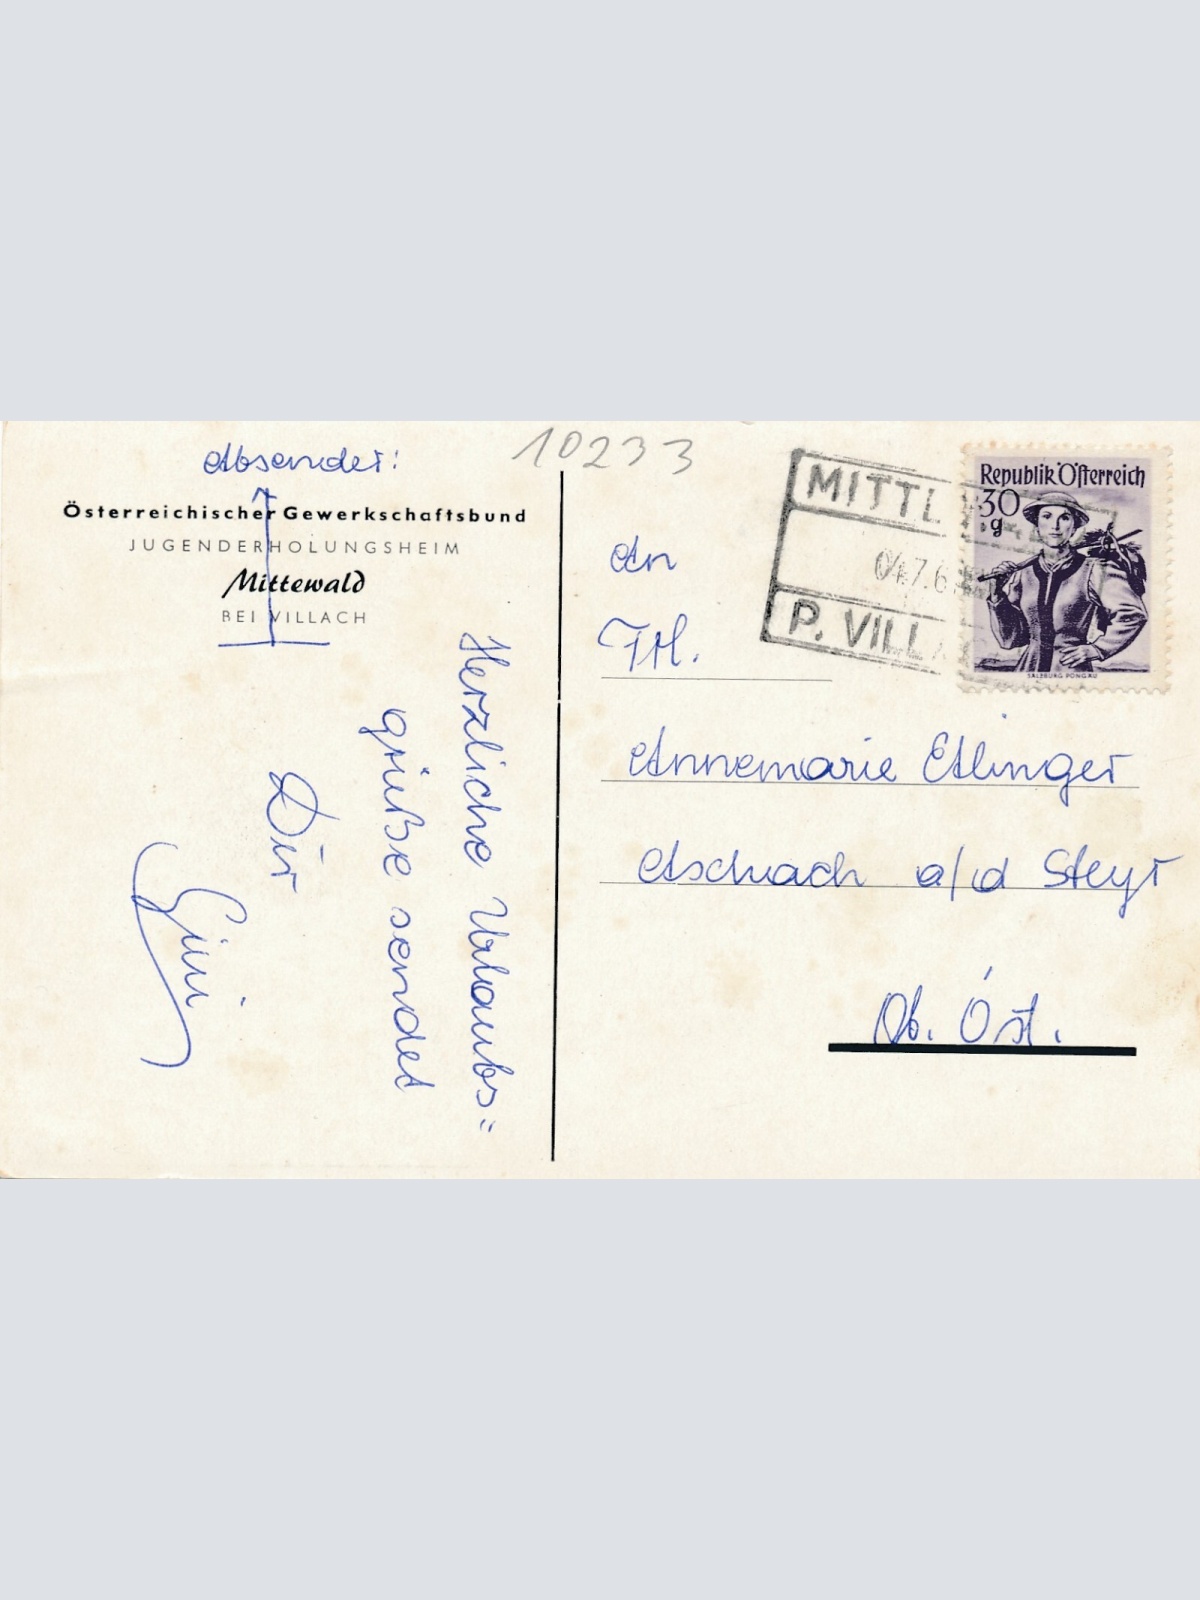 Absender:
Österreichischer Gewerkschaftsbund
JUGENDERHOLUNGSHEIM
Mittewald
BEI VILLACH
Herzliche Urlaubs=
grüße sendet
Dir
10233
MITTL
04.7.6
P. VILL
Republik Österreich
30
g
SALZBURG PONGAU
An
Frl.
Annemarie Etlinger
Aschach a/d Steyr
Ob. Öst.